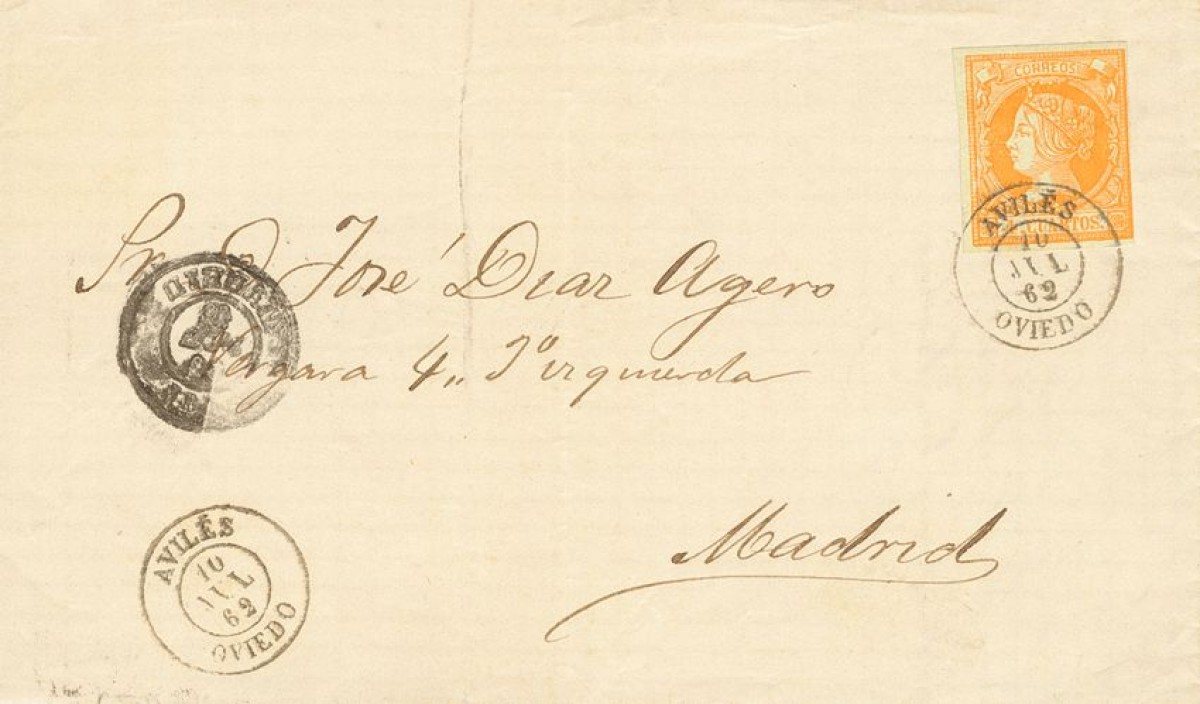 CORREOS
CUARTOS.
AVILÉS
10
JUL
62
OVIEDO
Sr. D. José Diaz Agero
Vergara 4,, 3º izquierda
Madrid
AVILÉS
10
JUL
62
OVIEDO